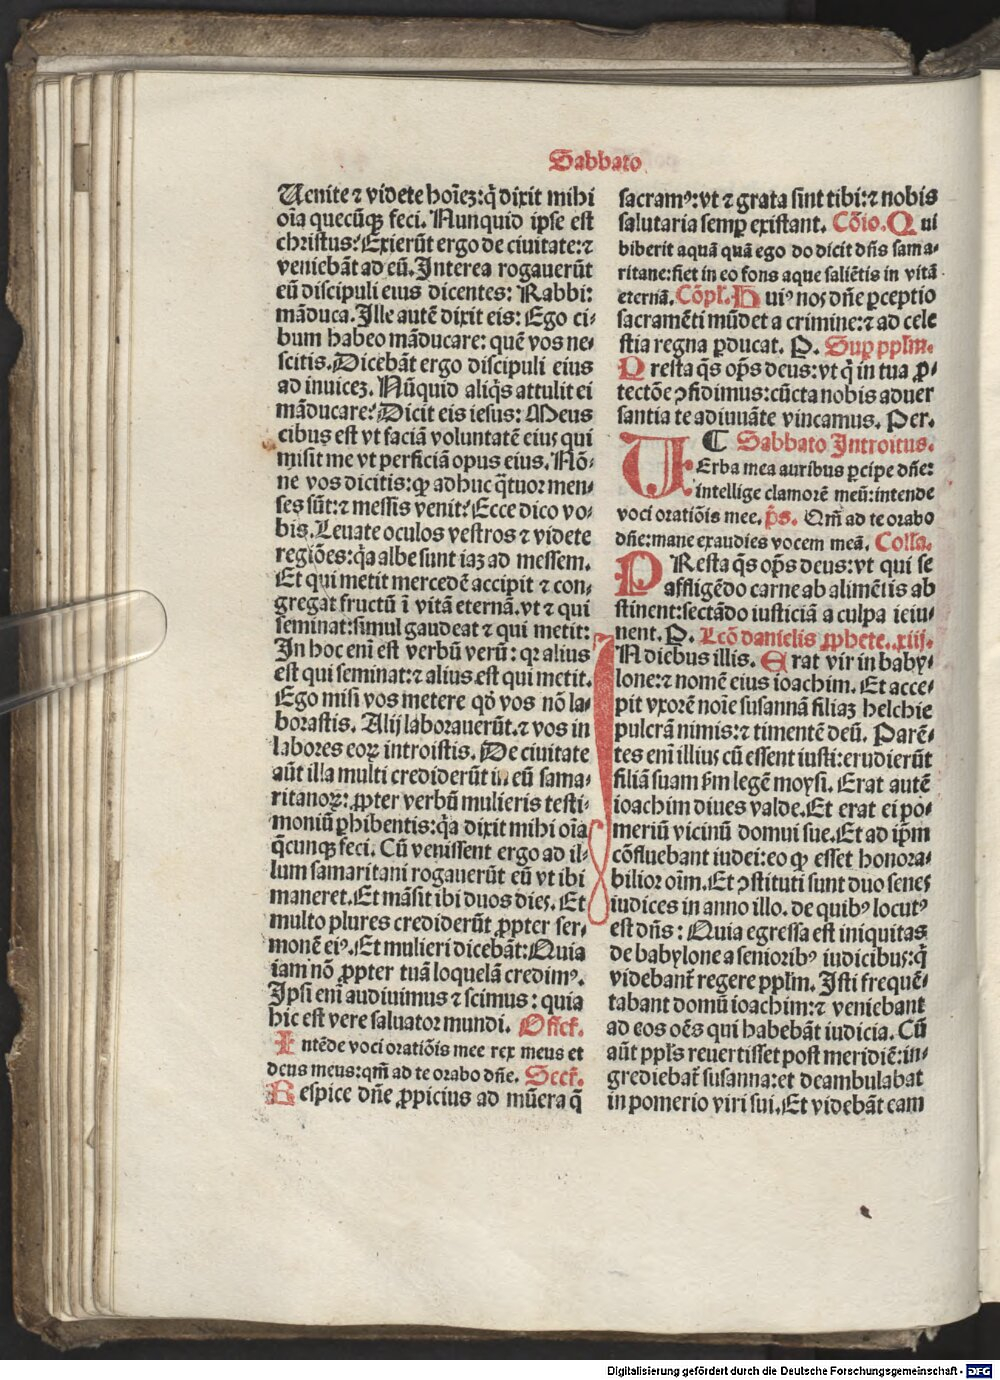 Sabbato
Uenite ⁊ videte hoīeꝫ: q̄ dixit mihi
oīa quecūqꝫ feci. Nunquid ipse est
christus? Exierūt ergo de ciuitate: ⁊
veniebāt ad eū. Interea rogauerūt
eū discipuli eius dicentes: Rabbi:
māduca. Ille autē dixit eis: Ego ci⸗
bum habeo māducare: quē vos ne⸗
scitis. Dicebāt ergo discipuli eius
ad inuiceꝫ. Nūquid aliq̄s attulit ei
māducare? Dicit eis iesus: Meus
cibus est vt faciā voluntatē eius qui
misit me vt perficiā opus eius. Nō⸗
ne vos dicitis: ꝙ adhuc q̄tuor men⸗
ses sūt: ⁊ messis venit? Ecce dico vo⸗
bis. Leuate oculos vestros ⁊ videte
regiōes: q̄a albe sunt iaꝫ ad messem.
Et qui metit mercedē accipit ⁊ con⸗
gregat fructū ī vitā eternā. vt ⁊ qui
seminat: simul gaudeat ⁊ qui metit:
In hoc enī est verbū verū: qꝛ alius
est qui seminat: ⁊ alius est qui metit.
Ego misi vos metere qď vos nō la⸗
borastis. Alij laborauerūt. ⁊ vos in
labores eoꝝ introistis. De ciuitate
aūt illa multi crediderūt in eū sama⸗
ritanoꝝ: ꝓpter verbū mulieris testi⸗
moniū ꝑhibentis: q̄a dixit mihi oīa
q̄cunqꝫ feci. Cū venissent ergo ad il⸗
lum samaritani rogauerūt eū vt ibi
maneret. Et māsit ibi duos dies. Et
multo plures crediderūt ꝓpter ser⸗
monē eiꝰ. Et mulieri dicebāt: Quia
iam nō ꝓpter tuā loquelā credimꝰ.
Ipsi enī audiuimus ⁊ scimus: quia
hic est vere saluator mundi. Offeꝛ̄.
Intēde voci oratiōis mee rex meus et
deus meus: qm̄ ad te orabo dn̄e. Secꝛ̄.
Respice dn̄e ꝓpicius ad mūera q̄
sacramꝰ: vt ⁊ grata sint tibi: ⁊ nobis
salutaria semꝑ existant. Cōio. Qui
biberit aquā quā ego do dicit dn̄s sama⸗
ritane: fiet in eo fons aque saliētis in vitā
eternā. Cōpl̄. Huiꝰ nos dn̄e ꝑceptio
sacramēti mūdet a crimine: ⁊ ad cele
stia regna ꝑducat. P. Suꝑ pplm̄.
Presta q̄s op̄s deus: vt q̄ in tua ꝓ⸗
tectōe ꝯfidimus: cūcta nobis aduer
santia te adiuuāte vincamus. Per.
¶ Sabbato Introitus.
UErba mea auribus ꝑcipe dn̄e:
intellige clamorē meū: intende
voci oratiōis mee. p̄s. Qm̄ ad te orabo
dn̄e: mane exaudies vocem meā. Colla.
PResta q̄s op̄s deus: vt qui se
affligēdo carne ab alimētis ab
stinent: sectādo iusticiā a culpa ieiu⸗
nent. P. Lcō danielis ꝓphete. xiij.
IN diebus illis. Erat vir in baby⸗
lone: ⁊ nomē eius ioachim. Et acce⸗
pit vxorē noīe susannā filiaꝫ helchie
pulcrā nimis: ⁊ timentē deū. Parē⸗
tes enī illius cū essent iusti: erudierūt
filiā suam ẜm legē moysi. Erat autē
ioachim diues valde. Et erat ei po⸗
meriū vicinū domui sue. Et ad ip̄m
cōfluebant iudei: eo ꝙ esset honora⸗
bilior oīm. Et ꝯstituti sunt duo senes
iudices in anno illo. de quibꝰ locutꝰ
est dn̄s: Quia egressa est iniquitas
de babylone a senioribꝰ iudicibus: q̄
videbant̄ regere pplm̄. Isti frequē⸗
tabant domū ioachim: ⁊ veniebant
ad eos oēs qui habebāt iudicia. Cū
aūt ppl̄s reuertisset post meridiē: in⸗
grediebat̄ susanna: et deambulabat
in pomerio viri sui. Et videbāt eam
Digitalisierung gefördert durch die Deutsche Forschungsgemeinschaft - DFG